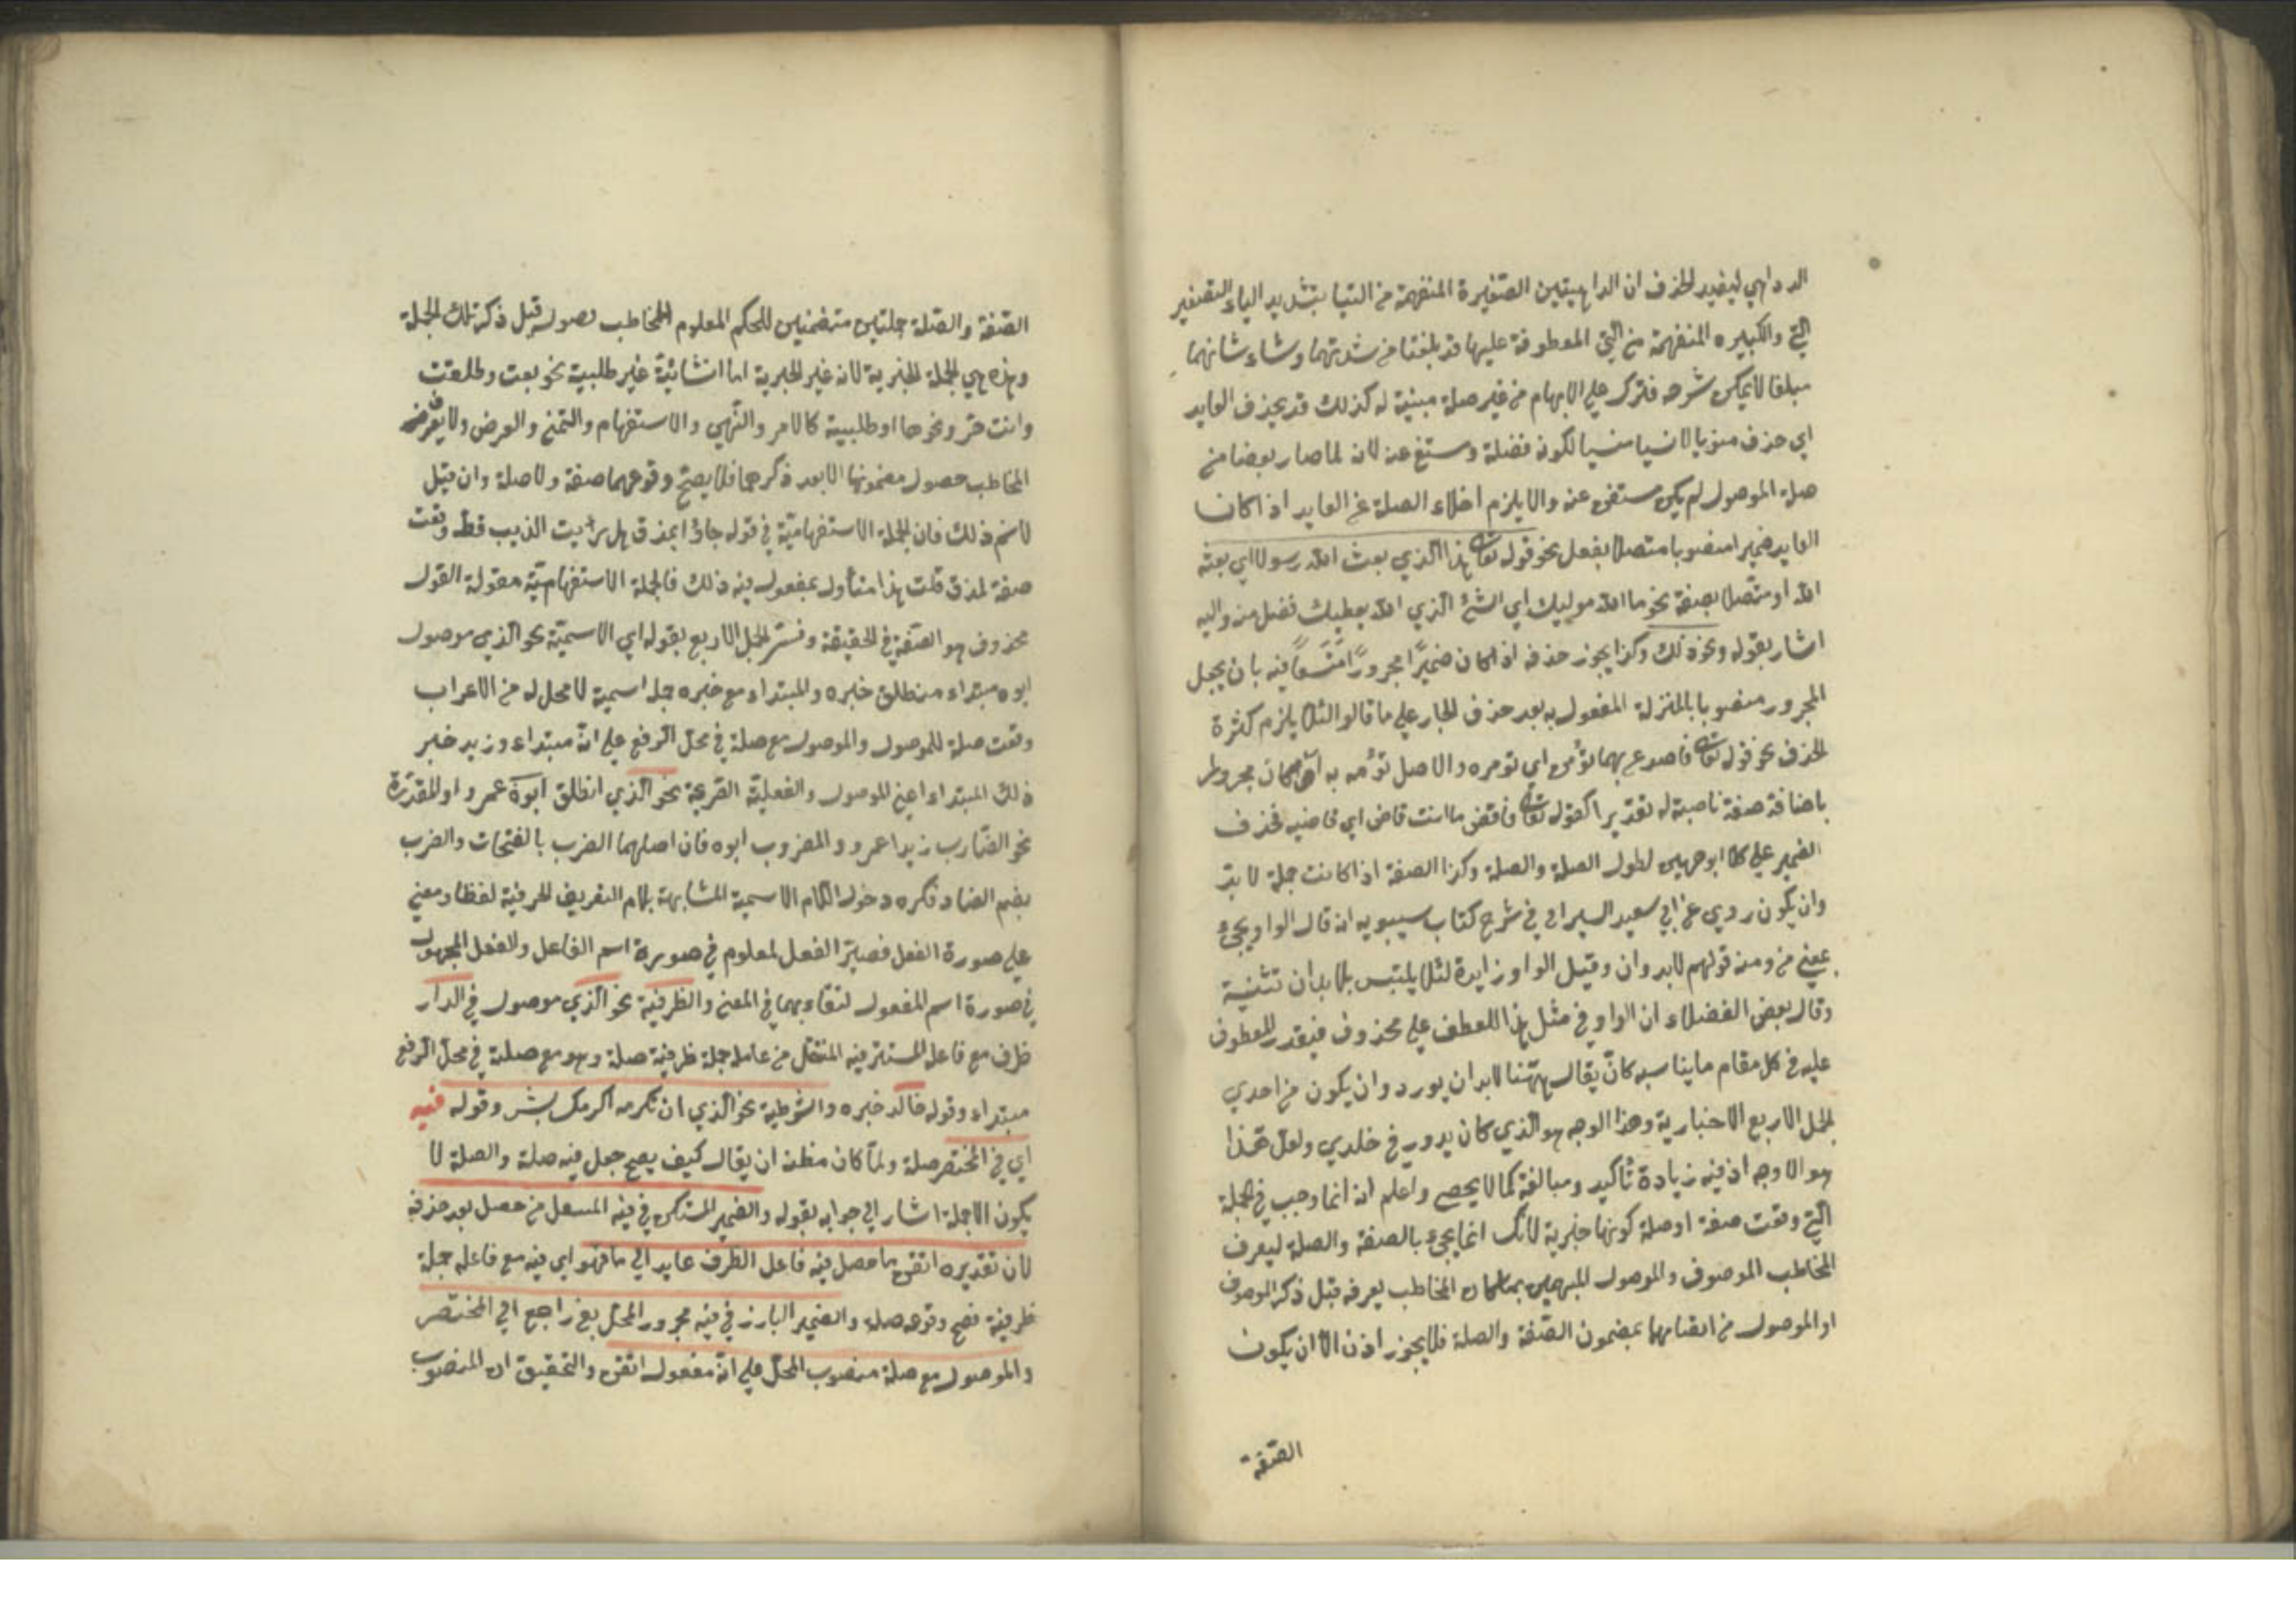 الدواهي ليفيد الحذف ان الداهيتين الصغيرة المنفهمة من اللتيا بتشديد الياء التصغير
التي والكبيره المنفهمة من التي المعطوفة عليها قد بلغتا من شدتهما وشاء شانهما
مبلغا لا يمكن شرحه فترك علي الابهام من غير صلة مبنية له كذلك قد يحذف العايد
اي حذف منويا لا نسيا منسيا لكونه فضلة وستغ عنه لانه لما صار بعضا من
صلة الموصول لم يكن مستغني عنه والا يلزم اخلاء الصلة عن العايد اذا كان
العايد ضميرا منصوبا متصلا بفعل نحو قوله تعالى هذا الذي بعث الله رسولا اي بعثه
الله او متصلا بصفة نحو ما الله موليك اي الشئ الذي الله يعطيك فضل منه واليه
اشار بقوله ونحو ذلك وكذا يجوز حذفه اذا كان ضميرًا مجرورًا متسعًا فيه بان يجعل
المجرور منصوبا بالمنزلة المفعول به بعد حذف الجار علي ما قالوا لئلا يلزم كثرة
الحذف نحو قوله تعالى فاصدع بما تؤمر اي تومره والاصل تؤمر به او كان مجرورا
باضافة صفة ناصبة له تقديرا كقوله تعالى فاقض ما انت قاض اي قاضيه فحذف
الضمير علي كلا الوجهين لطول الصلة والصلة وكذا الصفة اذا كانت جملة لا بد
وان يكون روي عن ابي سعيد السيرافي في شرح كتاب سيبويه انه قال الواو يجئ
بمعني من ومنه قولهم لابد وان وقيل الواو زايدة لئلا يلتبس بلا بدان تثنية
وقال بعض الفضلاء ان الواو في مثل هذا للعطف علي محذوف فيقدر المعطوف
عليه في كل مقام ما يناسبه كان يقال ههنا لابد ان يورد وان يكون من احدي
الجمل الاربع الاخبارية وهذا الوجه هو الذي كان يدور في خلدي ولعل هذا
هو الاوجه اذ فيه زيادة تأكيد ومبالغة كما لا يحصي واعلم انه انما وجب في الجملة
التي وقعت صفة او صلة كونها خبرية لانك انما يجيء بالصفة والصلة ليعرف
المخاطب الموصوف والموصول المبهمين بما كان المخاطب يعرفه قبل ذكر الموصوف
او الموصول من اتصافهما بمضمون الصفة والصلة فلا يجوز اذن الا ان يكون
الصفة
الصفة والصلة جملتين متضمنين للحكم المعلوم للمخاطب حصوله قبل ذكر تلك الجملة
وهذه هي الجملة الخبرية لان غير الخبرية اما انشائية غير طلبية نحو بعت وطلقت
وانت حر ونحوها او طلبية كالامر والنهي والاستفهام والتمني والعرض ولا يعرف
المخاطب حصول مضمونها الا بعد ذكرهما فلا يصح وقوعهما صفة ولا صلة وان قيل
لانم ذلك فان الجملة الاستفهامية في قوله جاؤا بمذق هل رايت الذيب قط وقعت
صفة لمذق قلت هذا متأول بمقعول فيه ذلك فالجملة الاستفهامية مقولة القول
محذوف هو الصفة في الحقيقة وفسر الجمل الاربع بقوله اي الاسمية نحو الذي موصول
ابوه مبتداء منطلق خبره والمبتداء مع خبره جملة اسمية لا محل له من الاعراب
وقعت صلة للموصول والموصول مع صلة في محل الرفع علي انه مبتداء وزيد خبر
ذلك المبتداء اعني الموصول والفعلية الصريحة نحو الذي انطلق ابوه عمرو او المقدرة
نحو الضارب زيدا عمرو والمضروب ابوه فان اصلهما الضرب بالفتحات والضرب
بضم الضاد فكره دخول اللام الاسمية المشابهة بلام التعريف الحرفية لفظا ومعني
علي صورة الفعل فصير الفعل المعلوم في صورة اسم الفاعل والفعل المجهول
في صورة اسم المفعول لتقاربهما في المعني والظرفية نحو الذي موصول في الدار
ظرف مع فاعله المستتر فيه المنتقل من عامله جملة ظرفية صلة وهو مع صلته في محل الرفع
مبتداء وقوله خالد خبره والشرطية نحو الذي ان تكرمه اكرمك بشر وقوله فيه
اي في المختصر صلة ولما كان مظنة ان يقال كيف يصح جعل فيه صلة والصلة لا
يكون الا جملة اشار الي جوابه بقوله والضمير المستكن في فيه المنتقل من حصل بعد حذفه
لان تقديره اتقن ما حصل فيه فاعل الظرف عايد الي ما فهو اي فيه مع فاعله جملة
ظرفية فصح وقوعه صلة والضمير البارز في فيه مجرور المحل بفي راجع الي المختصر
والموصول مع صلة منصوب المحل علي انه مفعول اتقن والتحقيق ان المنصوب